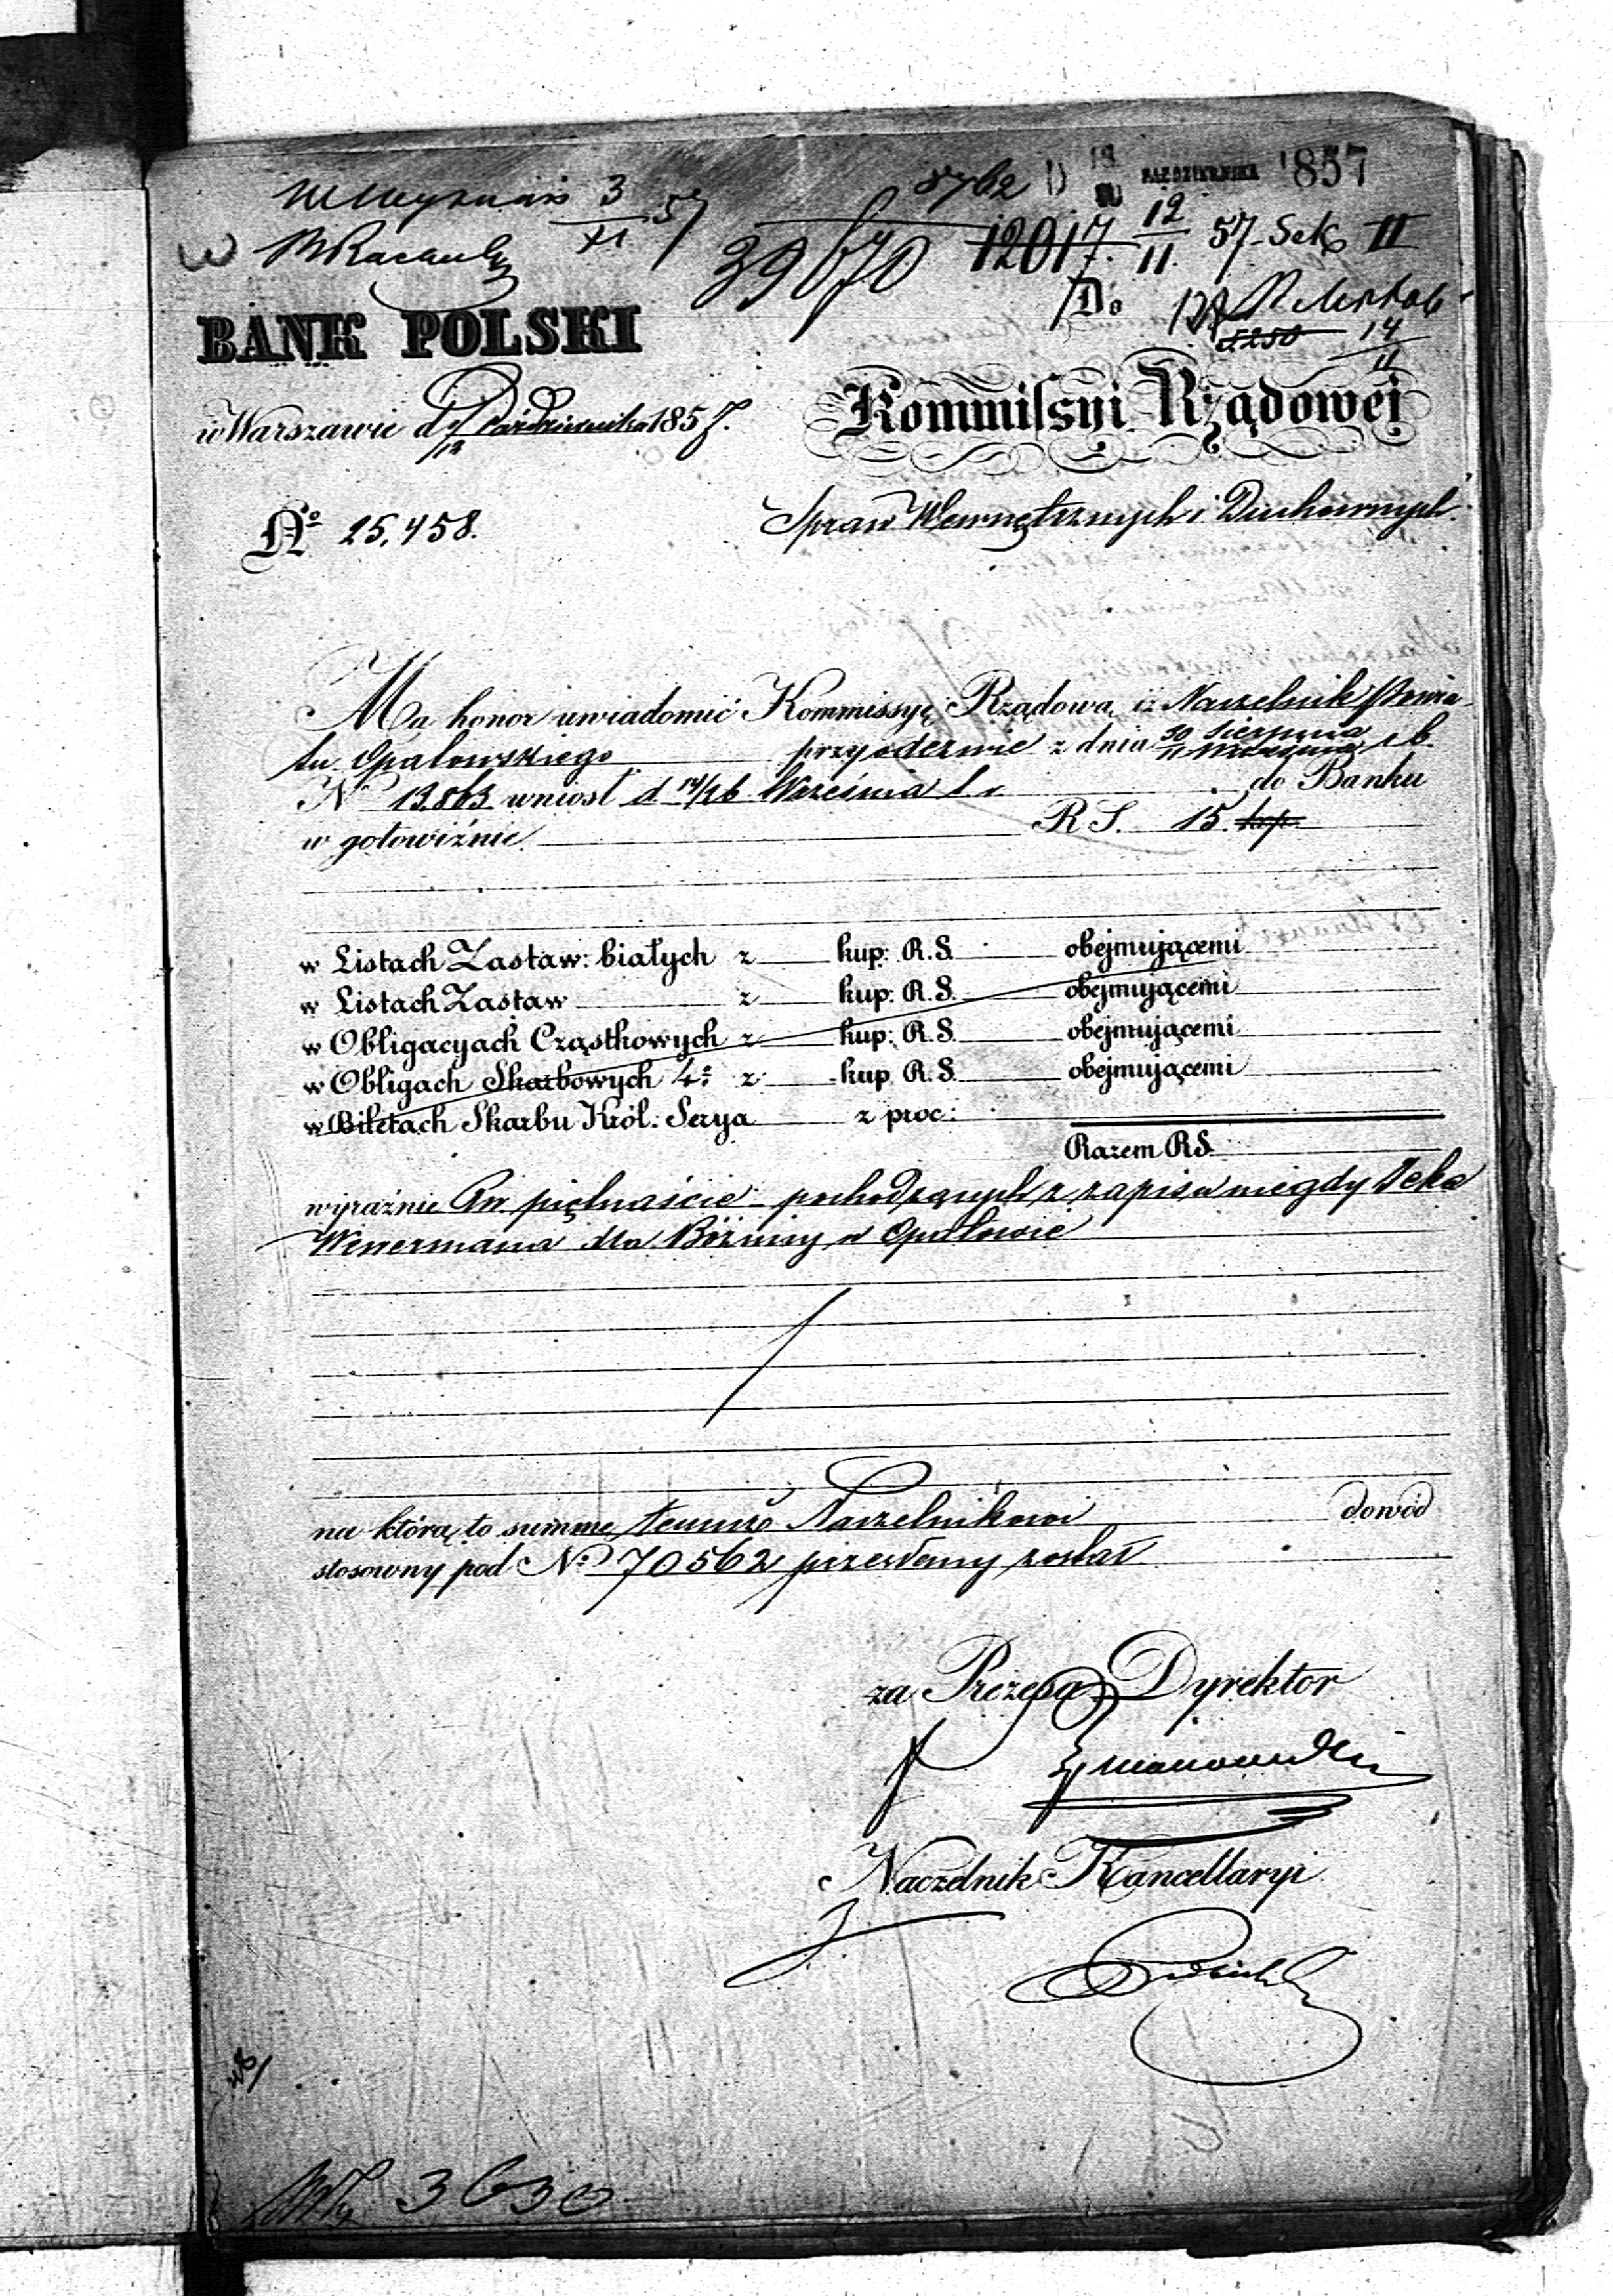 8762 D 18 PAŹDZIERNIKA 1857
3/XI 57
39670 12017. 12/11 57 Sek II
Do
5250 14/11
BANK POLSKI
w Warszawie d. Października 1857.
Kommissyi Rządowéj
No 25,458.
Spraw Wewnętrznych i Duchownych.
Ma honor uwiadomić Kommissyę Rządową, iż Naczelnik Powia-
tu Opatowskiego przy odezwie z dnia 30 Sierpnia / 11 Września r. b.
No 13863 wniosł d. 14/26 Września b. r. do Banku
w gotowiźnie RS. 15. kop.
w Listach Zastaw: białych z kup: R.S. obejmującemi
w Listach Zastaw z kup: R.S. obejmującemi
w Obligacyach Cząstkowych z kup: R.S. obejmującemi
w Obligach Skarbowych 4: z kup R.S. obejmującemi
w Biletach Skarbu Król: Serya z proc:
Razem RS.
wyraźnie piętnaście pochodzących z zapisu niegdy Icka
Weyermana dla Bóżnicy w Opatowie
na którą to summę temuż Naczelnikowi dowód
stosowny pod No 70562 przesłany został
za Prezesa Dyrektor
Naczelnik Kancellaryi
3630